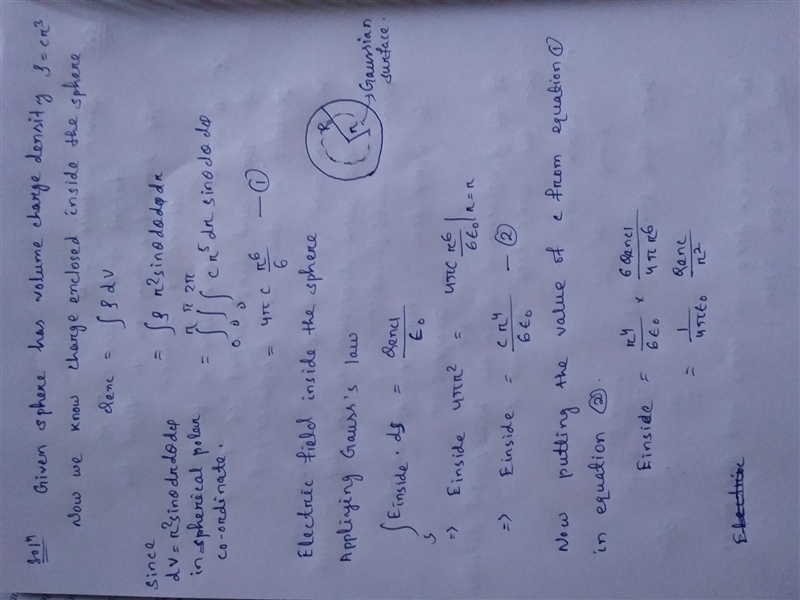 Solⁿ Given sphere has volume charge density ρ = cr³
Now we know charge enclosed inside the sphere
Qenc = ∫ρ dV
Since
dV = r² sinθ dr dθ dφ
in spherical polar
co-ordinate.
= ∫ρ r² sinθ dθ dφ dr
= ∫₀ʳ ∫₀^π ∫₀^2π c r⁵ dr sinθ dθ dφ
= 4πc r⁶/6 — ①
Electric field inside the sphere
Appliying Gauss's law
R
r
→ Gaussian
surface.
∫s Einside · ds = Qencl/ε₀
⇒ Einside 4πr² = 4πc r⁶/6ε₀ | r = r
⇒ Einside = c r⁴/6ε₀ — ②
Now putting the value of c from equation ①
in equation ②.
Einside = r⁴/6ε₀ × 6Qencl/4πr⁶
= 1/4πε₀ Qenc/r²
Electric